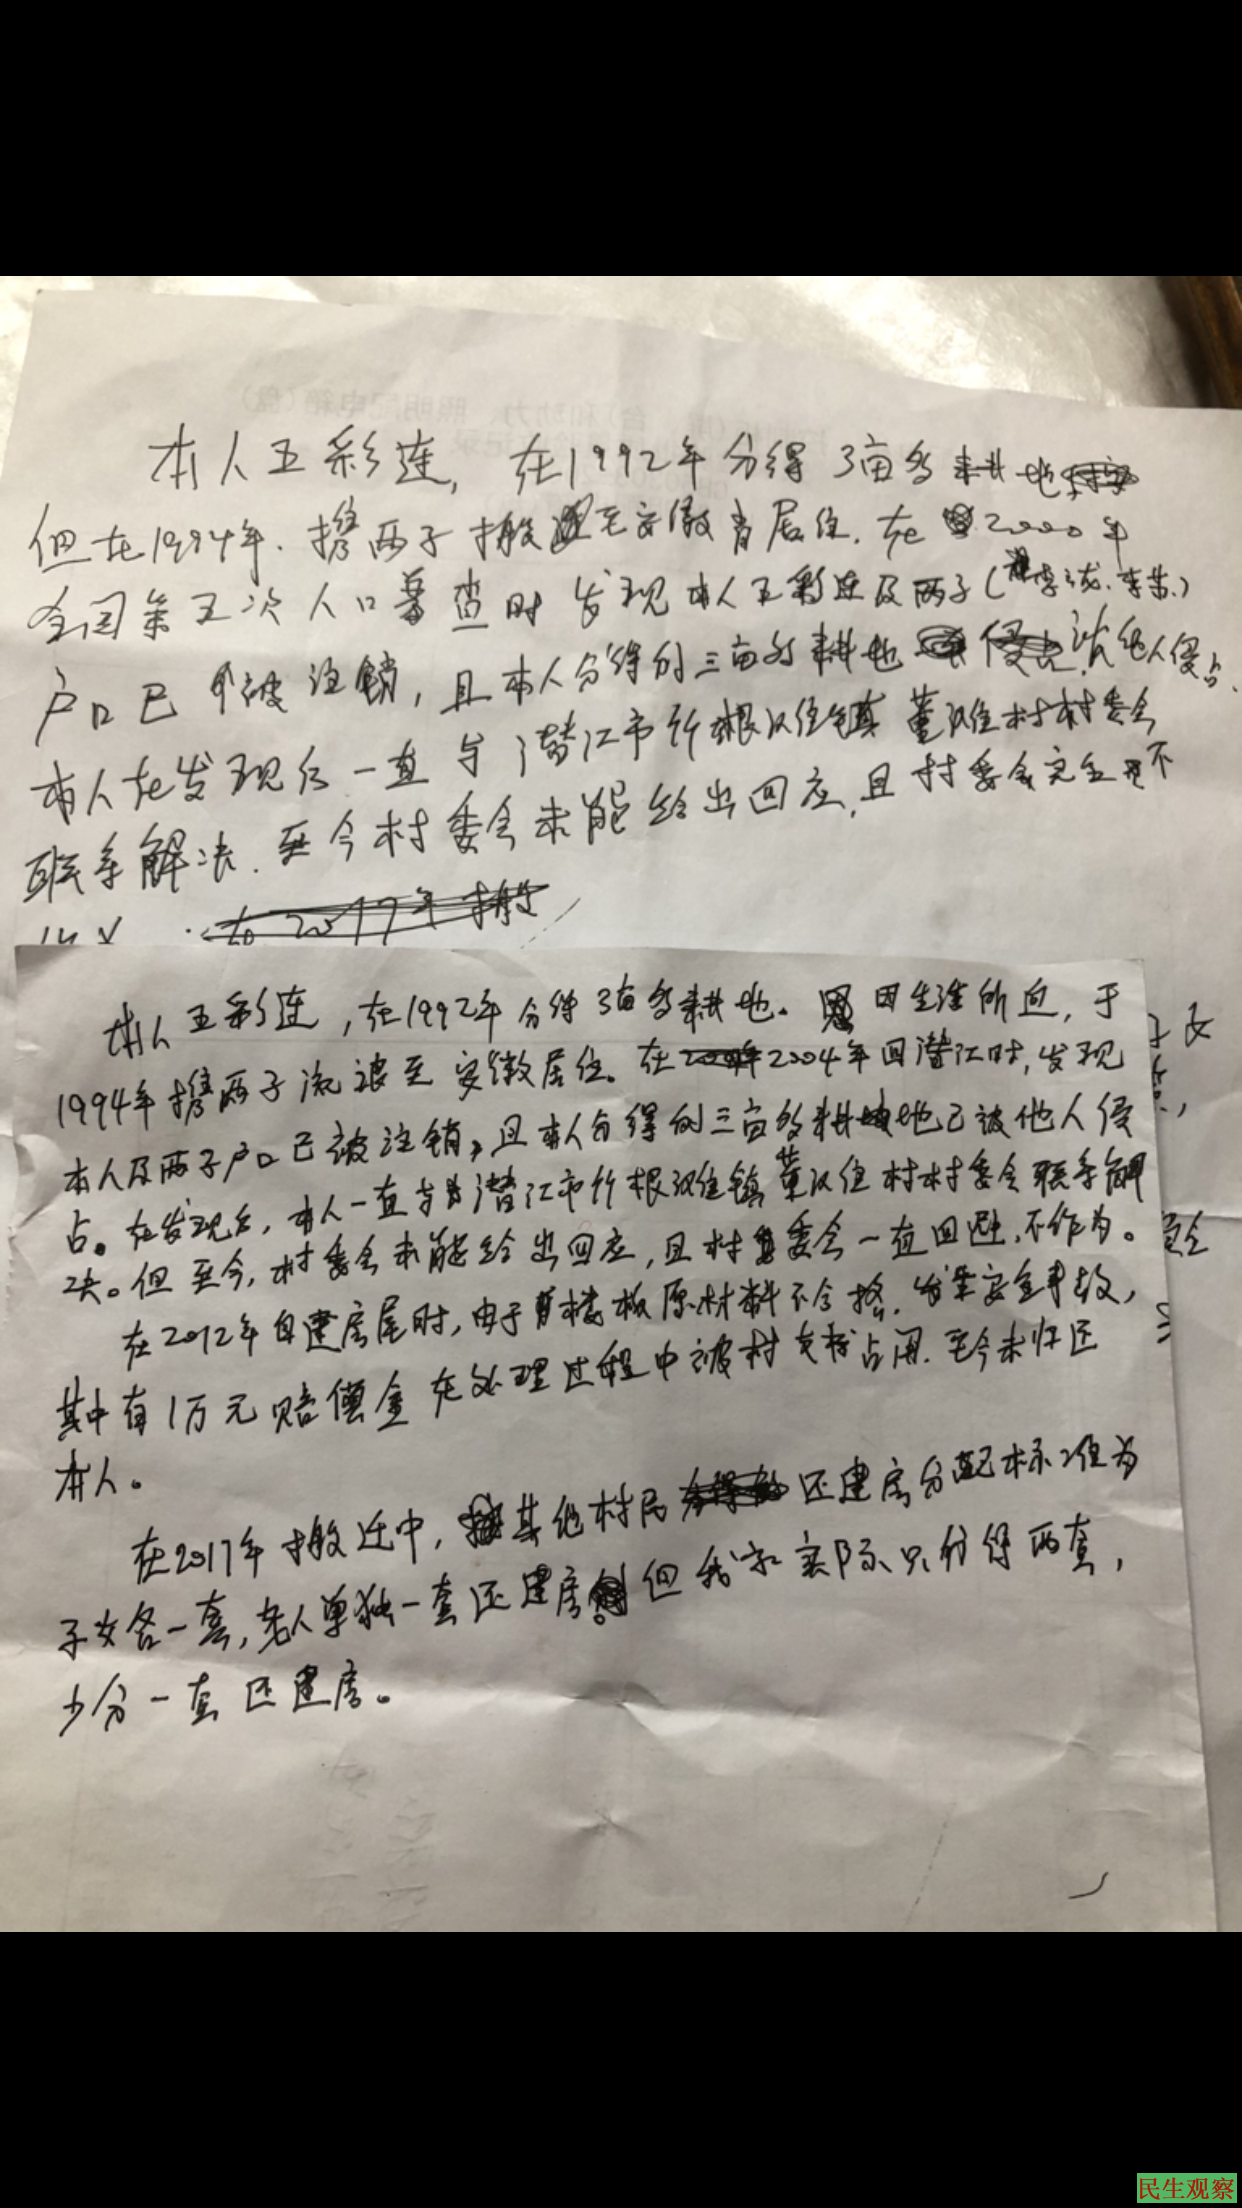 本人王彩连，在1992年分得3亩多耕地
但在1994年.携两子搬至安徽省居住.在2000年
全国第五次人口普查时发现本人王彩连及两子(李成.李苗.)
户口已被注销，且本人分得的三亩多耕地被他人侵占.
本人在发现后一直与潜江市竹根滩镇董滩村村委会
联系解决.至今村委会未能给出回应，且村委会完全不
在2017年搬
本人王彩连，在1992年分得3亩多耕地。因生活所迫，于
1994年携两子流浪至安徽居住。在2004年回潜江时，发现
本人及两子户口已被注销，且本人分得的三亩多耕地已被他人侵
占。在发现后，本人一直与潜江市竹根滩镇董滩村村委会联系解
决。但至今，村委会未能给出回应，且村委会一直回避，不作为。
在2012年自建房屋时，由于楼板原材料不合格，发生安全事故，
其中有1万元赔偿金在处理过程中被村支书占用.至今未归还
本人。
在2017年搬迁中，其他村民还建房分配标准为
子女各一套，老人单独一套还建房但我家实际只分得两套，
少分一套还建房。
民生观察